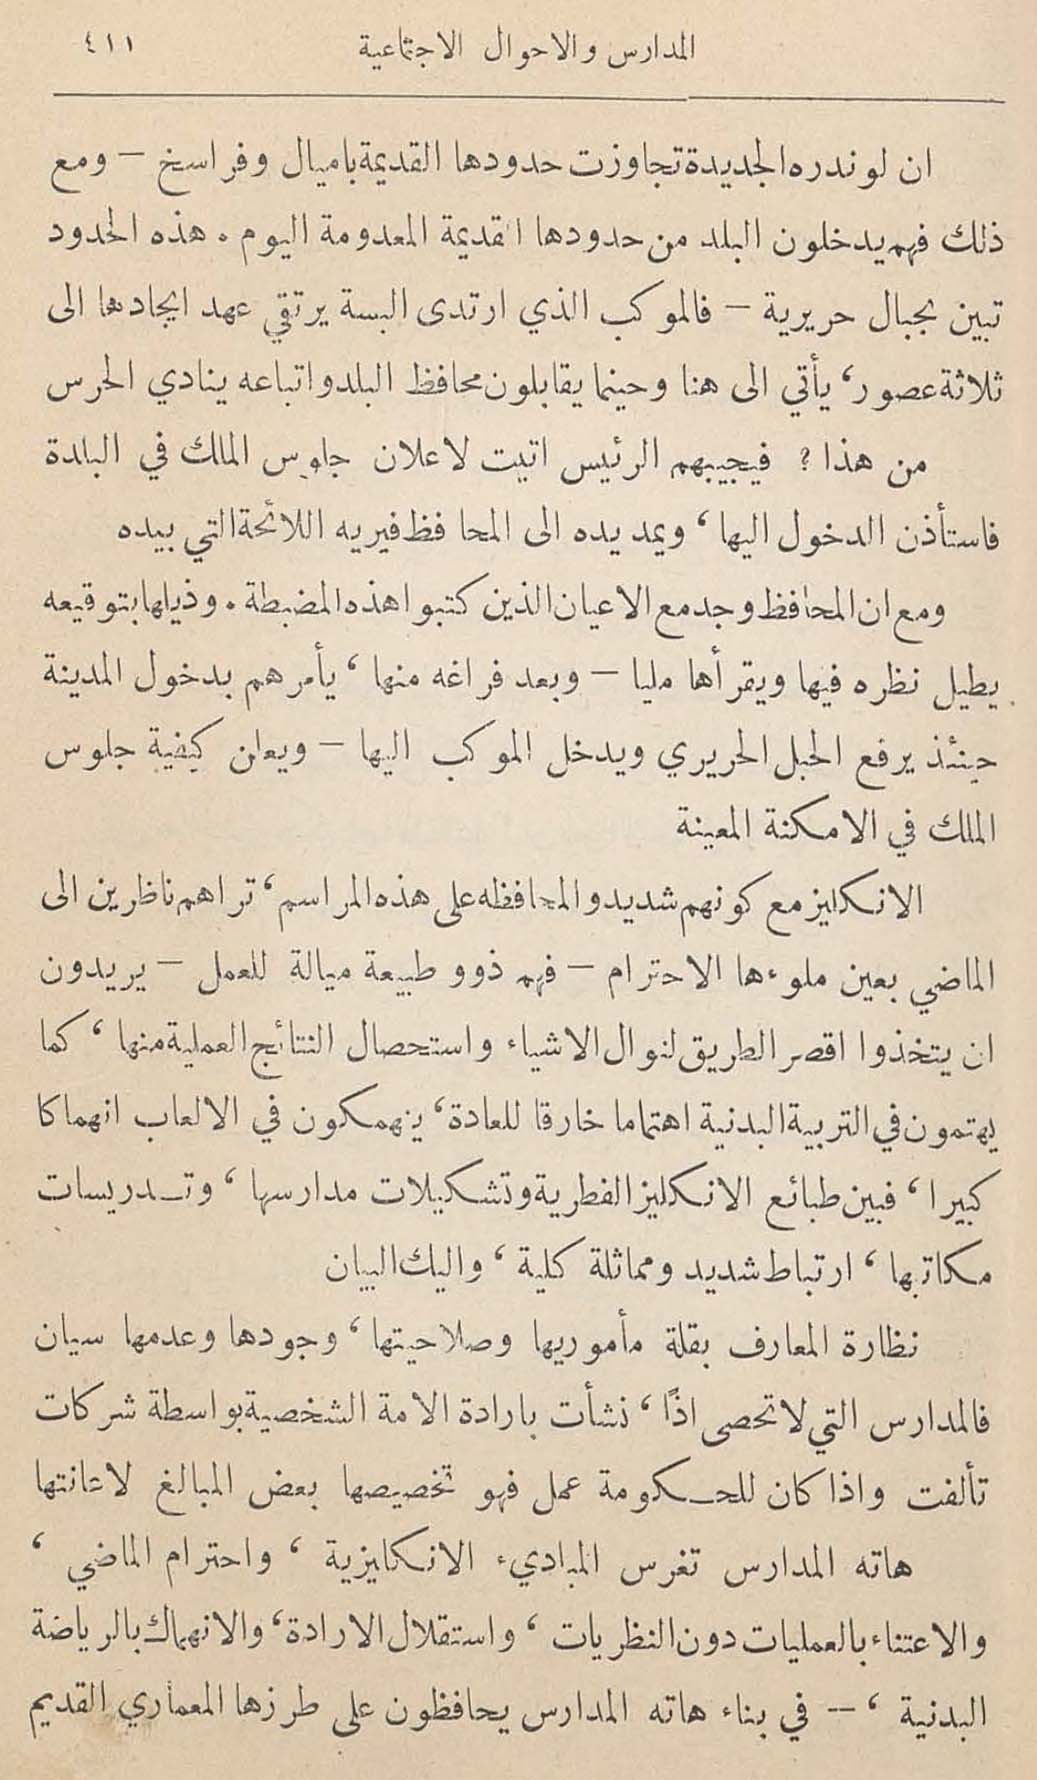 المدارس والاحوال الاجتماعية ٤١١
ان لوندره الجديدة تجاوزت حدودها القديمة باميال وفراسخ – ومع
ذلك فهم يدخلون البلد من حدودها القديمة المعدومة اليوم . هذه الحدود
تبين بحبال حريرية – فالموكب الذي ارتدى البسة يرتقي عهد ايجادها الى
ثلاثة عصور ، يأتي الى هنا وحينما يقابلون محافظ البلد واتباعه ينادي الحرس
من هذا ؟ فيجيبهم الرئيس اتيت لاعلان جلوس الملك في البلدة
فاستأذن الدخول اليها ، ويمد يده الى المحافظ فيريه اللائحة التي بيده
ومع ان المحافظ وجد مع الاعيان الذين كتبوا هذه المضبطة . وذيلها بتوقيعه
يطيل نظره فيها ويقرأها مليا – وبعد فراغه منها ، يأمرهم بدخول المدينة
حينئذ يرفع الحبل الحريري ويدخل الموكب اليها – ويعلن كيفية جلوس
الملك في الامكنة المعينة
الانكليز مع كونهم شديدو المحافظه على هذه المراسم ، تراهم ناظرين الى
الماضي بعين ملوءها الاحترام – فهم ذوو طبيعة ميالة للعمل – يريدون
ان يتخذوا اقصر الطريق لنوال الاشياء واستحصال النتائج العملية منها ، كما
يهتمون في التربية البدنية اهتماما خارقا للعادة ، ينهمكون في الالعاب انهماكا
كبيرا ، فبين طبائع الانكليز الفطرية وتشكيلات مدارسها ، وتـدريسات
مكاتبها ، ارتباط شديد ومماثلة كلية ، واليك البيان
نظارة المعارف بقلة مأموريها وصلاحيتها ، وجودها وعدمها سيان
فالمدارس التي لا تحصى اذًا ، نشأت بارادة الامة الشخصية بواسطة شركات
تألفت واذا كان للحـكومة عمل فهو تخصيصها بعض المبالغ لاعانتها
هاته المدارس تغرس المباديء الانكليزية ، واحترام الماضي ،
والاعتناء بالعمليات دون النظريات ، واستقلال الارادة ، والانهماك بالرياضة
البدنية ، – في بناء هاته المدارس يحافظون على طرزها المعماري القديم